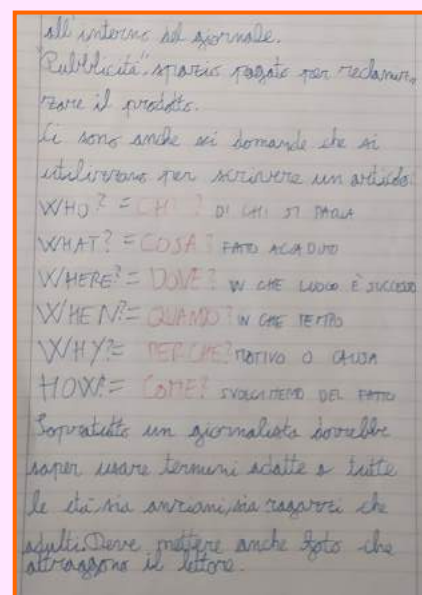 all'interno del giornale.
"Pubblicità", spazio pagato per reclamiz-
zare il prodotto.
Ci sono anche sei domande che si
utilizzano per scrivere un articolo.
WHO? = CHI? DI CHI SI PARLA
WHAT? = COSA? FATO ACADUTO
WHERE? = DOVE? IN CHE LUOGO È SUCCESSO
WHEN? = QUANDO? IN CHE TEMPO
WHY? = PERCHE? MOTIVO O CAUSA
HOW? = COME? SVOLGIMENTO DEL FATTO
Sopratutto un giornalista dovrebbe
saper usare termini adatte a tutte
le età, sia anziani, sia ragazzi che
adulti. Deve mettere anche foto che
attraggono il lettore.